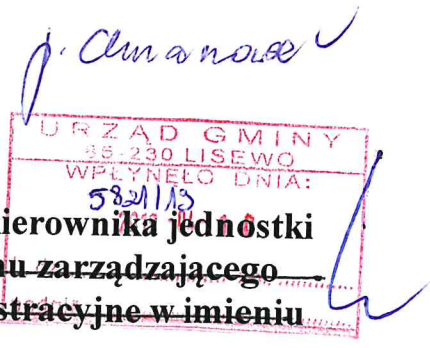 p.
URZĄD GMINY
86-230 LISEWO
WPŁYNĘŁO DNIA:
5821/13
ierownika jednostki
u zarządzającego
stracyjne w imieniu